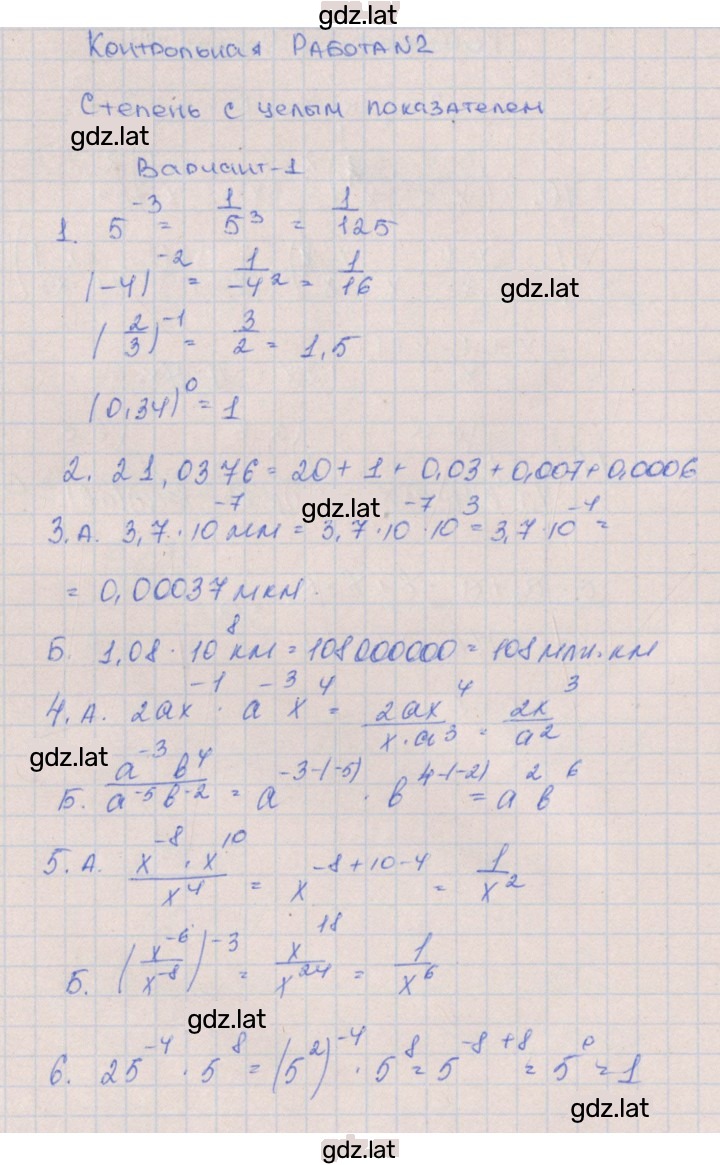 gdz.lat
Контрольная РАБОТА N2
Степень с целым показателем
gdz.lat
Вариант-1
1. 5^-3 = 1/5^3 = 1/125
(-4)^-2 = 1/-4^2 = 1/16
gdz.lat
(2/3)^-1 = 3/2 = 1,5
(0,34)^0 = 1
2. 21,0376 = 20 + 1 + 0,03 + 0,007 + 0,0006
gdz.lat
3. А. 3,7 · 10^-7 мм = 3,7 · 10^-7 · 10^3 = 3,7 · 10^-4 =
= 0,00037 мкм.
Б. 1,08 · 10^8 км = 108000000 = 108 млн. км
4. А. 2ax^-1 · a^-3 x^4 = 2ax^4/x·a^3 = 2x^3/a^2
gdz.lat
Б. a^-3 b^4/a^-5 b^-2 = a^-3-(-5) · b^4-(-2) = a^2 b^6
5. А. x^-8 · x^10/x^4 = x^-8+10-4 = 1/x^2
Б. (x^-6/x^-8)^-3 = x^18/x^24 = 1/x^6
gdz.lat
6. 25^-4 · 5^8 = (5^2)^-4 · 5^8 = 5^-8+8 = 5^0 = 1
gdz.lat
gdz.lat